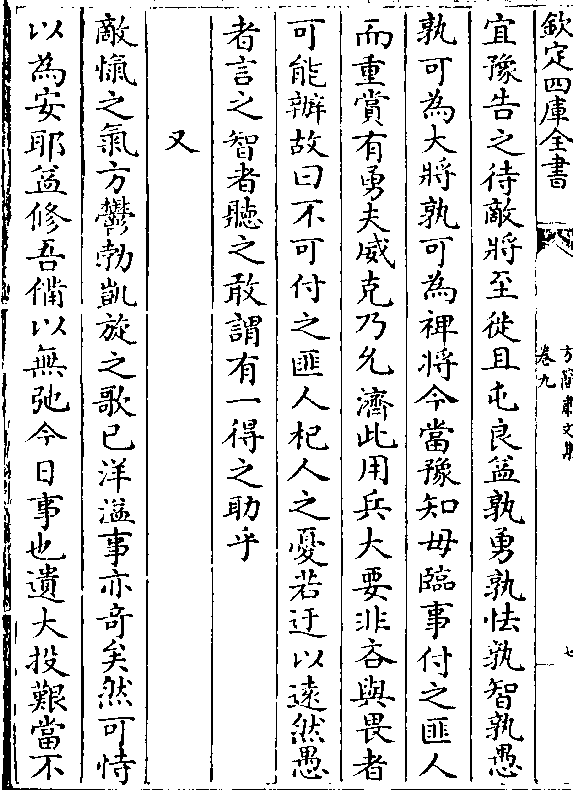 欽定四庫全書
卷九
宜豫告之待敵將至徙且屯良益孰勇孰怯孰智孰愚
孰可為大將孰可為裨將今當豫知毋臨事付之匪人
而重賞有勇夫威克乃允濟此用兵大要非吝與畏者
可能辦故曰不可付之匪人杞人之憂若迂以遠然愚
者言之智者聽之敢謂有一得之助乎
又
敵愾之氣方鬱勃凱旋之歌已洋溢事亦奇矣然可恃
以為安耶益修吾備以無弛今日事也遺大投艱當不